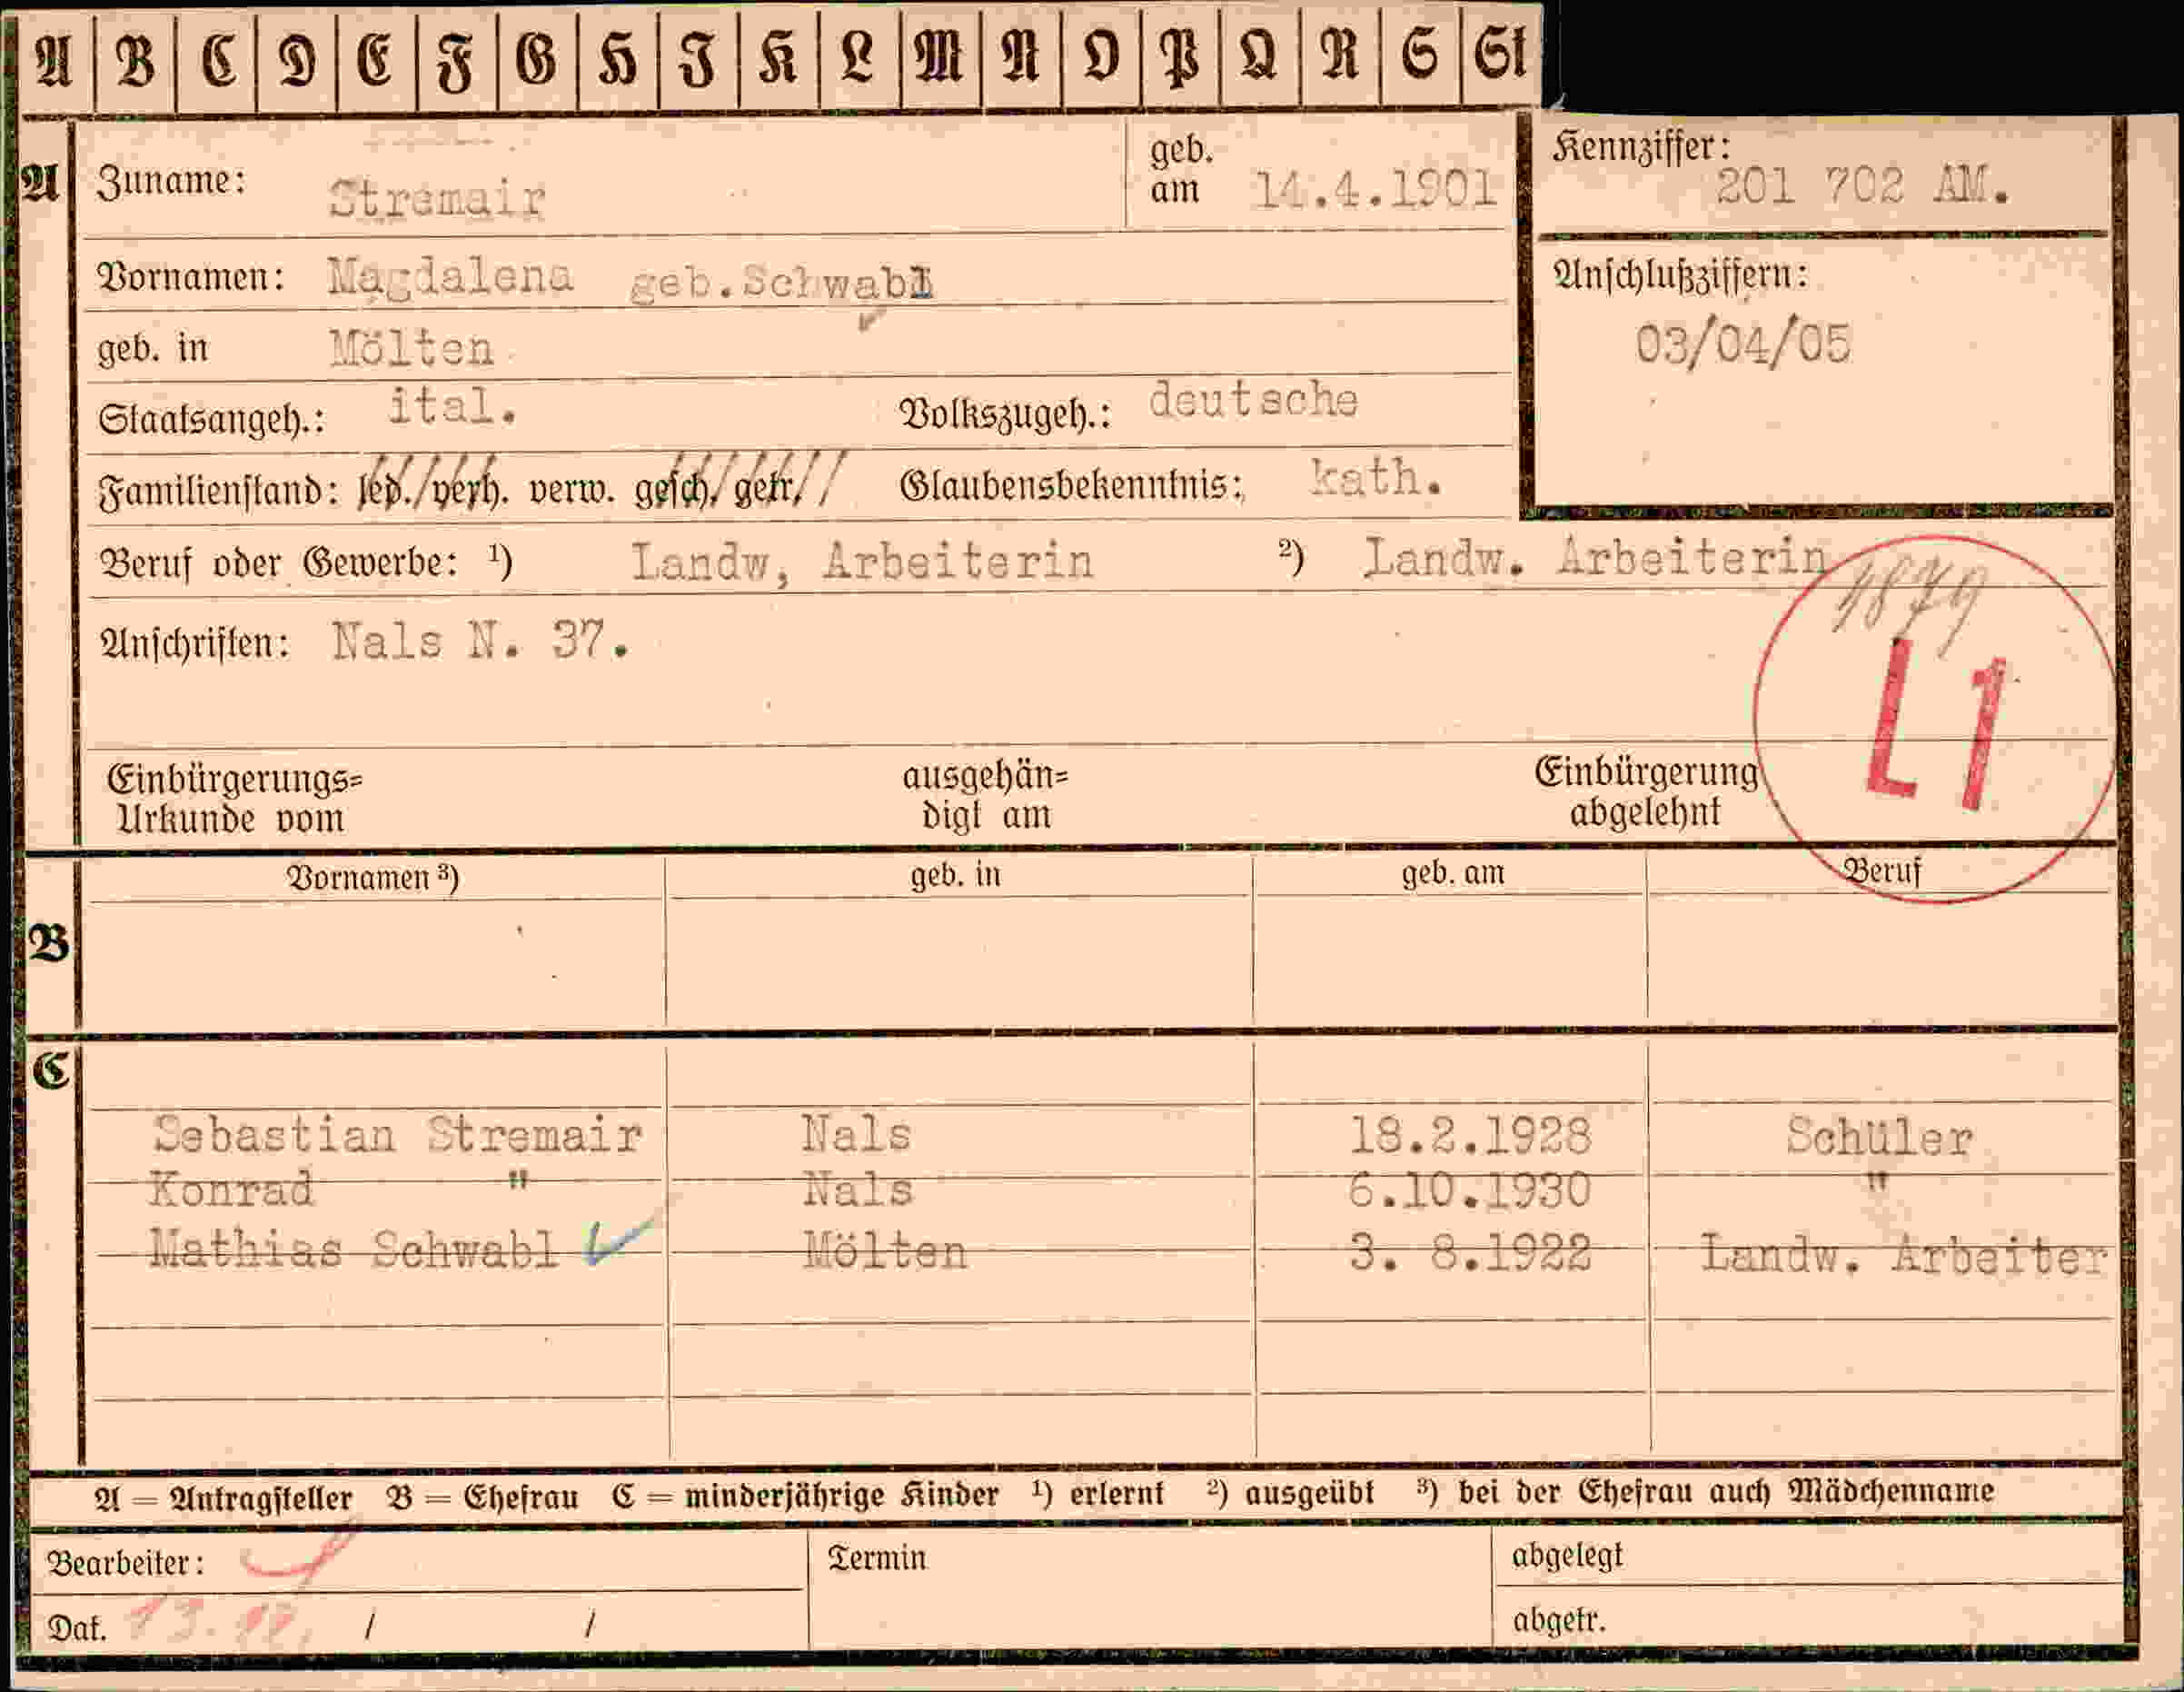 A B C D E F G H I K L M N O P Q R S St
A
Zuname: Stremair geb. am 14.4.1901
Kennziffer: 201 702 AM.
Vornamen: Magdalena geb. Schwabl
Anschlußziffern: 03/04/05
geb. in Mölten
Staatsangeh.: ital. Volkszugeh.: deutsche
Familienstand: led./verh. verw. gesch./getr. Glaubensbekenntnis: kath.
Beruf oder Gewerbe: ¹) Landw, Arbeiterin ²) Landw. Arbeiterin
1879
Anschriften: Nals N. 37.
L1
Einbürgerungs= ausgehän= Einbürgerung
Urkunde vom digt am abgelehnt
B
Vornamen ³) geb. in geb. am Beruf
C
Sebastian Stremair Nals 18.2.1928 Schüler
Konrad " Nals 6.10.1930 "
Mathias Schwabl Mölten 3. 8.1922 Landw. Arbeiter
A = Antragsteller B = Ehefrau C = minderjährige Kinder ¹) erlernt ²) ausgeübt ³) bei der Ehefrau auch Mädchenname
Bearbeiter: Termin abgelegt
Dat. 13. / / abgetr.